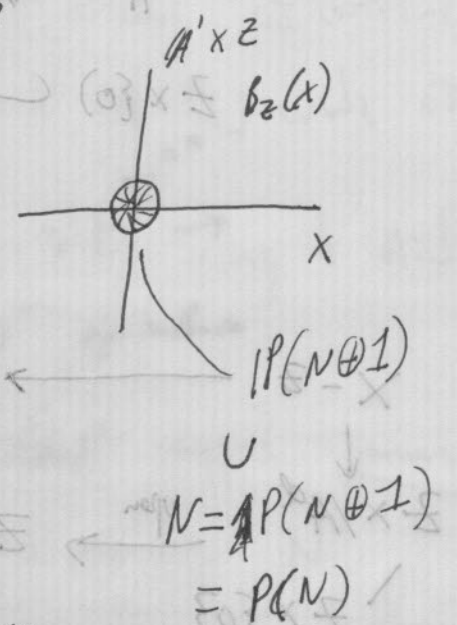 A¹ × Z
B_Z(X)
X
P(N⊕1)
∪
N = P(N⊕1)
= P(N)